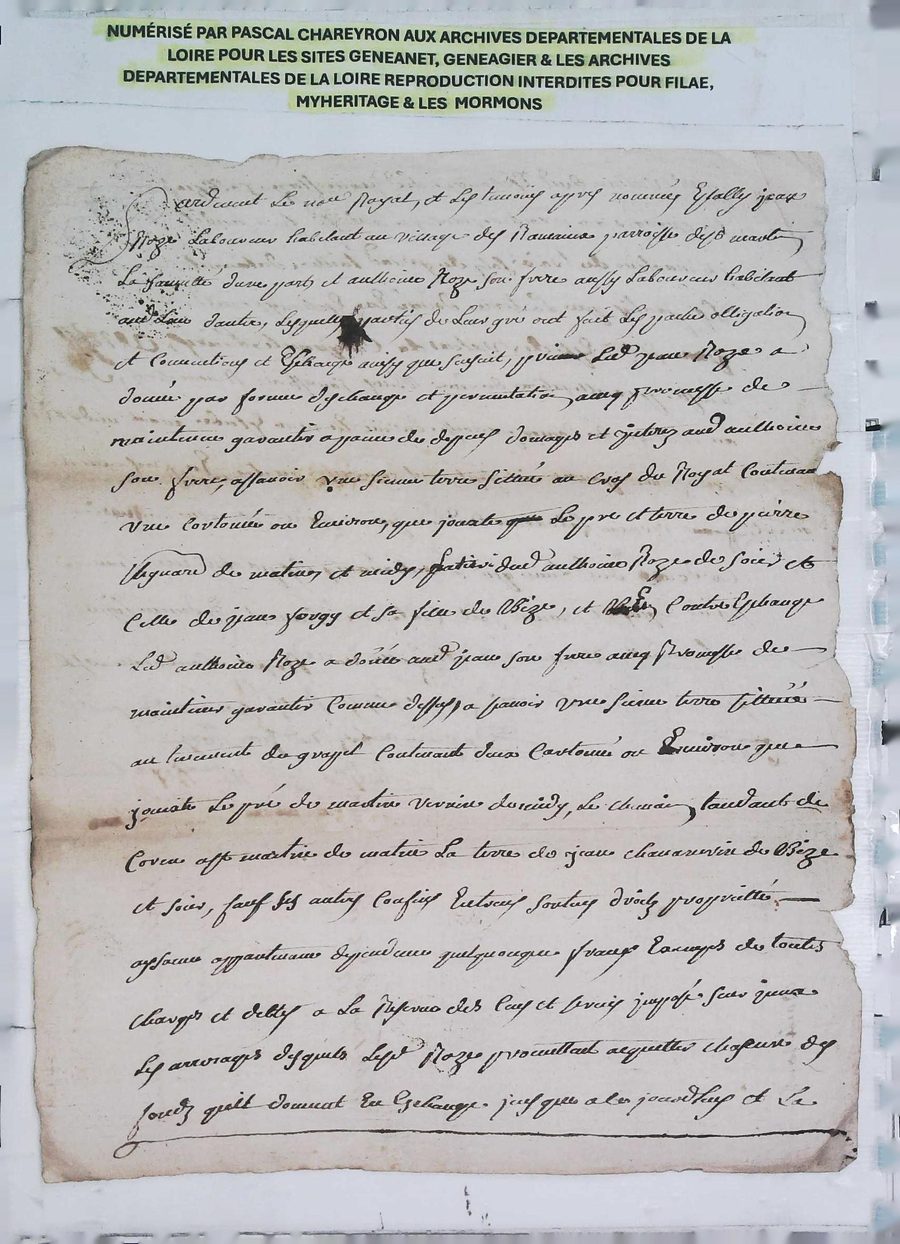 NUMÉRISÉ PAR PASCAL CHAREYRON AUX ARCHIVES DEPARTEMENTALES DE LA
LOIRE POUR LES SITES GENEANET, GENEAGIER & LES ARCHIVES
DEPARTEMENTALES DE LA LOIRE REPRODUCTION INTERDITES POUR FILAE,
MYHERITAGE & LES MORMONS
Pardevant Le nore Royal, et Les tesmoins apres nommés Estably jean
Roze Laboureur habitant au village des parroisse de St martin
La sauveté d'une part, et anthoine Roze son frere aussy Laboureur habitant
aud Lieu d'autre, Lesquelles parties de Leur gré ont fait Les pache obligation
et Conventions et Eschange ainsy que sensuit, Led jean Roze a
donné par forme deschange et permutation, avec promesse de
maintenir garantir a paine de despens domages et interez aud anthoine
son frere, assavoir une sienne terre sittuée au Cros du Royal Contenan
une Cartonnée ou Environ, que jouxte Le pre et terre de pierre
de matin, et midy, dud anthoine Roze de soir, et
Celle de jean forgy et sa fille de Bize, et En Contre Eschange
Led anthoine Roze a donné aud jean son frere avec Promesse de
maintenir garantir Comme dessus, a savoir une sienne terre sittuée
au du Contenant deux Cartonné ou Environ que
jouxte Le pré de martin de midy, Le chemin, tandant de
a St martin de matin La terre de jean de Bize
et soir, sauf ses autres Confins Entrees sorties droits proprietté
appartenance dependence quelquonque francs Exempts de toutes
charges et debtes a La Reserve des Cens et servis imposé sur jceux
Les arrerages desquels Lesd Roze promettent acquitter chascun des
fondz quil donnent En Eschange jusques a ce jourdhuy et La